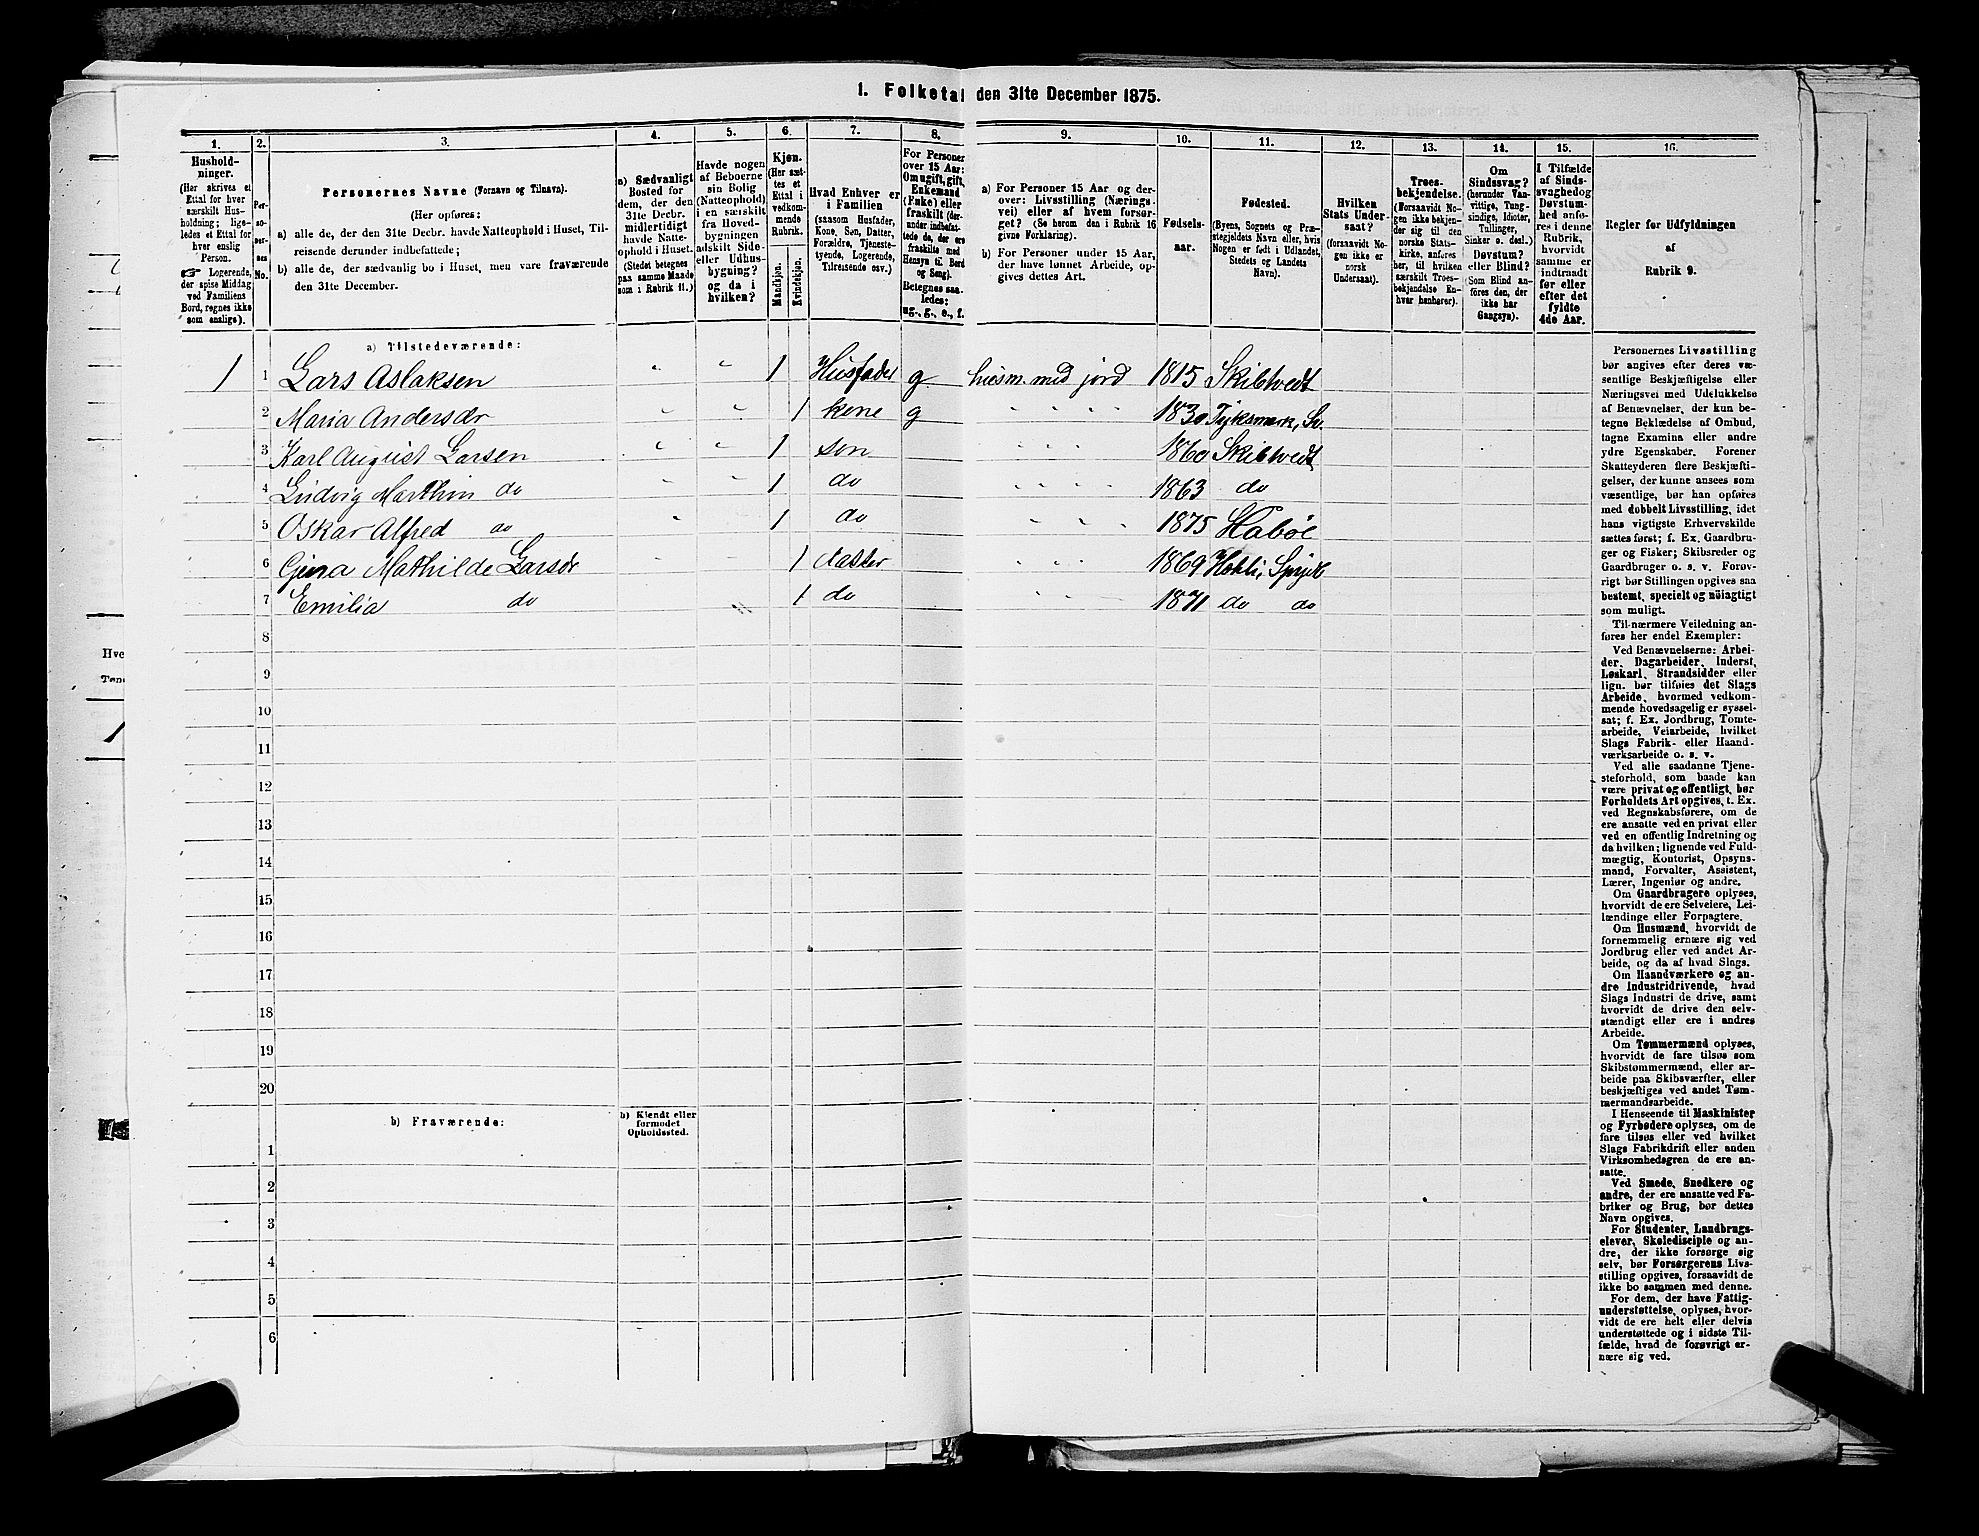 1. Folketal den 31te December 1875.
1.
Hushold-
ninger.
(Her skrives et
Ettal for hver
særskilt Hus-
holdning; lige-
ledes et Ettal for
hver enslig
Person.
☞ Logerende,
der spise Middag
ved Familiens
Bord, regnes ikke
som enslige).
2.
Per-
so-
ner-
nes
No.
3.
Personernes Navne (Fornavn og Tilnavn).
(Her opføres:
a) alle de, der den 31te Decbr. havde Natteophold i Huset, Til-
reisende derunder indbefattede;
b) alle de, der sædvanlig bo i Huset, men vare fraværende
den 31te December.
4.
a) Sædvanligt
Bosted for
dem, der den
31te Decbr.
midlertidigt
havde Natte-
ophold i Huset.
(Stedet betegnes
paa samme Maade
som i Rubrik 11.)
5.
Havde nogen
af Beboerne
sin Bolig
(Natteophold)
i en særskilt
fra Hoved-
bygningen
adskilt Side-
eller Udhus-
bygning?
og da i
hvilken?
6.
Kjøn.
(Her sæt-
tes et
Ettal i
vedkom-
mende
Rubrik.
Mandkjøn.
Kvindekjøn.
7.
Hvad Enhver er
i Familien
(saasom Husfader,
Kone, Søn, Datter,
Forældre, Tjeneste-
tyende, Logerende,
Tilreisende osv.)
8.
For Personer
over 15 Aar:
Om ugift, gift,
Enkemand
(Enke) eller
fraskilt (der-
under indbefat-
tede de, der ere
fraskilte med
Hensyn til Bord
og Seng).
Betegnes saa-
ledes:
ug., g., e., f.
9.
a) For Personer 15 Aar og der-
over: Livsstilling (Nærings-
vei) eller af hvem forsør-
get? (Se herom den i Rubrik 16
givne Forklaring).
b) For Personer under 15 Aar,
der have lønnet Arbeide, op-
gives dettes Art.
10.
Fødsels-
aar.
11.
Fødested.
(Byens, Sognets og Præ-
stegjeldets Navn eller, hvis
Nogen er født i Udlandet,
Stedets og Landets
Navn).
12.
Hvilken
Stats Under-
saat?
(forsaavidt No-
gen ikke er
norsk
Undersaat).
13.
Troes-
bekjendelse.
(Forsaavidt No-
gen ikke bekjen-
der sig til den
norske Stats-
kirke, anføres
her, til hvilken
særskilt Troes-
bekjendelse En-
hver henhører).
14.
Om
Sindssvag?
(herunder Van-
vittige, Tung-
sindige, Idioter,
Tullinger,
Sinker o. desl.).
Døvstum?
eller Blind?
(Som Blind an-
føres den, der
ikke har
Gangsyn).
15.
I Tilfælde
af Sinds-
svaghed og
Døvstum-
hed anfø-
res i denne
Rubrik,
hvorvidt
samme er
indtraadt
før eller
efter det
fyldte
4de Aar.
16.
Regler for Udfyldningen
af
Rubrik 9.
a) Tilstedeværende:
1 1 Lars Aslaksen " " 1 Husfader g husm. med jord 1815 Skibtvedt
2 Maria Andersdr " " 1 kone g " " " " 1830
3 Karl August Larsen " " 1 søn " " " 1860 Skibtvedt
4 Ludvig Marthin do " " 1 do " " " " 1863 do
5 Oskar Alfred do " 1 do " " " " 1875 Habøl
6 Gina Mathilde Larsdr " " 1 datter " " " 1869
7 Emilia do " 1 do " " " 1871 do do
8
9
10
11
12
13
14
15
16
17
18
19
20
b) Fraværende:
b) Kjendt eller
formodet
Opholdssted.
1
2
3
4
5
6
Personernes Livsstilling
bør angives efter deres væ-
sentlige Beskjæftigelse eller
Næringsvei med Udelukkelse
af Benævnelser, der kun be-
tegne Beklædelse af Ombud,
tagne Examina eller andre
ydre Egenskaber. Forener
Skatteyderen flere Beskjæfti-
gelser, der kunne ansees som
væsentlige, bør han opføres
med dobbelt Livsstilling, idet
hans vigtigste Erhvervskilde
sættes først; f. Ex. Gaardbru-
ger og Fisker; Skibsreder og
Gaardbruger o. s. v. Forøv-
rigt bør Stillingen opgives saa
bestemt, specielt og nøiagtigt
som muligt.
Til nærmere Veiledning an-
føres her endel Exempler:
Ved Benævnelserne: Arbei-
der, Dagarbeider, Inderst,
Løskarl, Strandsidder eller
lign. bør tilføies det Slags
Arbeide, hvormed vedkom-
mende hovedsagelig er syssel-
sat; f. Ex. Jordbrug, Tomte-
arbeide, Veiarbeide, hvilket
Slags Fabrik- eller Haand-
værksarbeide o. s. v.
Ved alle saadanne Tjene-
steforhold, som baade kan
være privat og offentligt, bør
Forholdets Art opgives, t. Ex.
ved Regnskabsførere, om de
ere ansatte ved en privat eller
ved en offentlig Indretning og
da hvilken; lignende ved Fuld-
mægtig, Kontorist, Opsyns-
mand, Forvalter, Assistent,
Lærer, Ingeniør og andre.
Om Gaardbrugere oplyses,
hvorvidt de ere Selveiere, Lei-
lændinge eller Forpagtere.
Om Husmænd, hvorvidt de
fornemmelig ernære sig ved
Jordbrug eller ved andet Ar-
beide, og da af hvad Slags.
Om Haandværkere og an-
dre Industridrivende, hvad
Slags Industri de drive, samt
hvorvidt de drive den selv-
stændigt eller ere i andres
Arbeide.
Om Tømmermænd oplyses,
hvorvidt de fare tilsøs som
Skibstømmermænd, eller ar-
beide paa Skibsværfter, eller
beskjæftiges ved andet Tøm-
mermandsarbeide.
I Henseende til Maskinister
og Fyrbødere oplyses, om de
fare tilsøs eller ved hvilket
Slags Fabrikdrift eller anden
Virksomhedsgren de ere an-
satte.
Ved Smede, Snedkere og
andre, der ere ansatte ved Fa-
briker og Brug, bør dettes
Navn opgives.
For Studenter, Landbrugs-
elever, Skoledisciple og an-
dre, der ikke forsørge sig
selv, bør Forsørgerens Livs-
stilling opgives, forsaavidt de
ikke bo sammen med denne.
For dem, der have Fattig-
understøttelse, oplyses, hvor-
vidt de ere helt eller delvis
understøttede og i sidste Til-
fælde, hvad de forøvrigt er-
nære sig ved.